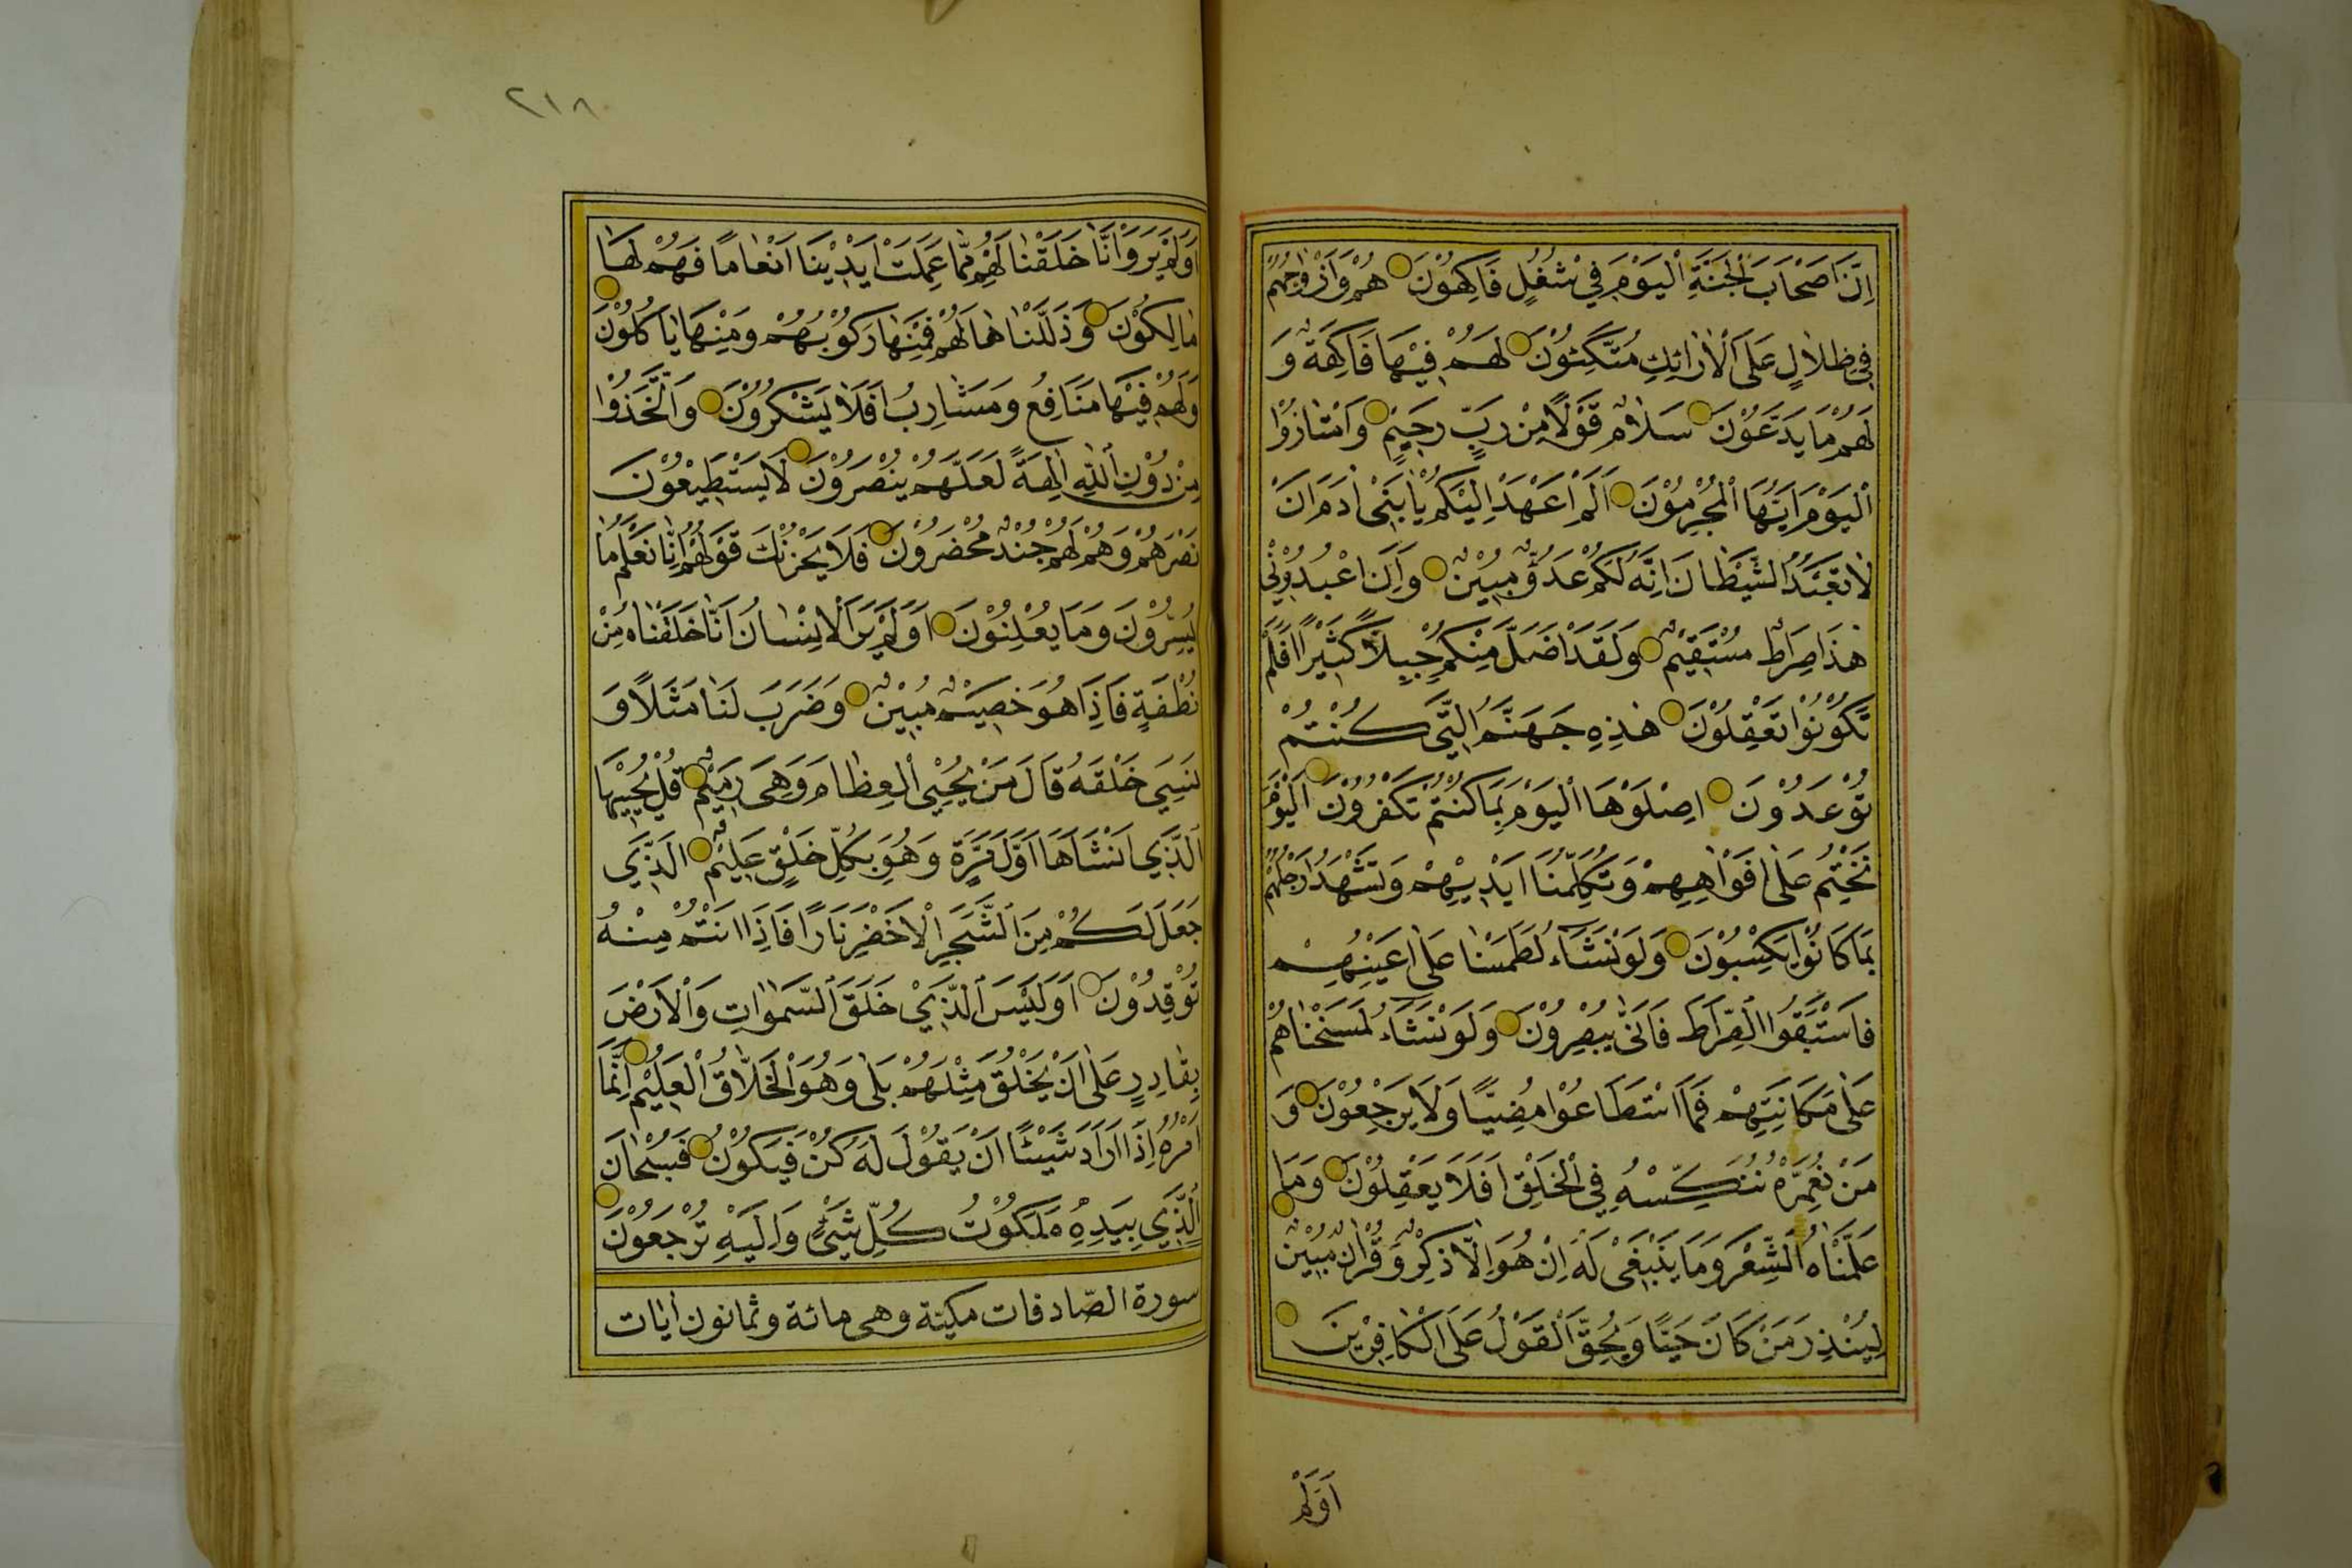 اِنَّ اَصْحَابَ الْجَنَّةِ الْيَوْمَ فِي شُغُلٍ فَاكِهُوْنَ هُمْ وَاَزْوَاجُهُمْ
فِي ظِلَالٍ عَلَى الْاَرَائِكِ مُتَّكِئُوْنَ لَهُمْ فِيْهَا فَاكِهَةٌ وَ
لَهُمْ مَا يَدَّعُوْنَ سَلَامٌ قَوْلًا مِنْ رَبٍّ رَحِيْمٍ وَامْتَازُوا
الْيَوْمَ اَيُّهَا الْمُجْرِمُوْنَ اَلَمْ اَعْهَدْ اِلَيْكُمْ يَا بَنِي اٰدَمَ اَنْ
لَا تَعْبُدُوا الشَّيْطَانَ اِنَّهُ لَكُمْ عَدُوٌّ مُبِيْنٌ وَاَنِ اعْبُدُوْنِي
هٰذَا صِرَاطٌ مُسْتَقِيْمٌ وَلَقَدْ اَضَلَّ مِنْكُمْ جِبِلًّا كَثِيْرًا اَفَلَمْ
تَكُوْنُوْا تَعْقِلُوْنَ هٰذِهِ جَهَنَّمُ الَّتِي كُنْتُمْ
تُوْعَدُوْنَ اِصْلَوْهَا الْيَوْمَ بِمَا كُنْتُمْ تَكْفُرُوْنَ اَلْيَوْمَ
نَخْتِمُ عَلٰى اَفْوَاهِهِمْ وَتُكَلِّمُنَا اَيْدِيْهِمْ وَتَشْهَدُ اَرْجُلُهُمْ
بِمَا كَانُوْا يَكْسِبُوْنَ وَلَوْ نَشَاءُ لَطَمَسْنَا عَلٰى اَعْيُنِهِمْ
فَاسْتَبَقُوا الصِّرَاطَ فَاَنّٰى يُبْصِرُوْنَ وَلَوْ نَشَاءُ لَمَسَخْنَاهُمْ
عَلٰى مَكَانَتِهِمْ فَمَا اسْتَطَاعُوْا مُضِيًّا وَلَا يَرْجِعُوْنَ وَ
مَنْ نُعَمِّرْهُ نُنَكِّسْهُ فِي الْخَلْقِ اَفَلَا يَعْقِلُوْنَ وَمَا
عَلَّمْنَاهُ الشِّعْرَ وَمَا يَنْبَغِي لَهُ اِنْ هُوَ اِلَّا ذِكْرٌ وَقُرْاٰنٌ مُبِيْنٌ
لِيُنْذِرَ مَنْ كَانَ حَيًّا وَيَحِقَّ الْقَوْلُ عَلَى الْكَافِرِيْنَ
اَوَلَمْ
٢١٨
اَوَلَمْ يَرَوْا اَنَّا خَلَقْنَا لَهُمْ مِمَّا عَمِلَتْ اَيْدِيْنَا اَنْعَامًا فَهُمْ لَهَا
مَالِكُوْنَ وَذَلَّلْنَاهَا لَهُمْ فَمِنْهَا رَكُوْبُهُمْ وَمِنْهَا يَاْكُلُوْنَ
وَلَهُمْ فِيْهَا مَنَافِعُ وَمَشَارِبُ اَفَلَا يَشْكُرُوْنَ وَاتَّخَذُوْا
مِنْ دُوْنِ اللّٰهِ اٰلِهَةً لَعَلَّهُمْ يُنْصَرُوْنَ لَا يَسْتَطِيْعُوْنَ
نَصْرَهُمْ وَهُمْ لَهُمْ جُنْدٌ مُحْضَرُوْنَ فَلَا يَحْزُنْكَ قَوْلُهُمْ اِنَّا نَعْلَمُ مَا
يُسِرُّوْنَ وَمَا يُعْلِنُوْنَ اَوَلَمْ يَرَ الْاِنْسَانُ اَنَّا خَلَقْنَاهُ مِنْ
نُطْفَةٍ فَاِذَا هُوَ خَصِيْمٌ مُبِيْنٌ وَضَرَبَ لَنَا مَثَلًا وَ
نَسِيَ خَلْقَهُ قَالَ مَنْ يُحْيِي الْعِظَامَ وَهِيَ رَمِيْمٌ قُلْ يُحْيِيْهَا
الَّذِي اَنْشَاَهَا اَوَّلَ مَرَّةٍ وَهُوَ بِكُلِّ خَلْقٍ عَلِيْمٌ الَّذِي
جَعَلَ لَكُمْ مِنَ الشَّجَرِ الْاَخْضَرِ نَارًا فَاِذَا اَنْتُمْ مِنْهُ
تُوْقِدُوْنَ اَوَلَيْسَ الَّذِي خَلَقَ السَّمٰوَاتِ وَالْاَرْضَ
بِقَادِرٍ عَلٰى اَنْ يَخْلُقَ مِثْلَهُمْ بَلٰى وَهُوَ الْخَلَّاقُ الْعَلِيْمُ اِنَّمَا
اَمْرُهُ اِذَا اَرَادَ شَيْئًا اَنْ يَقُوْلَ لَهُ كُنْ فَيَكُوْنُ فَسُبْحَانَ
الَّذِي بِيَدِهِ مَلَكُوْتُ كُلِّ شَيْءٍ وَاِلَيْهِ تُرْجَعُوْنَ
سورة الصّادفات مكية وهى مائة وثمانون ايات